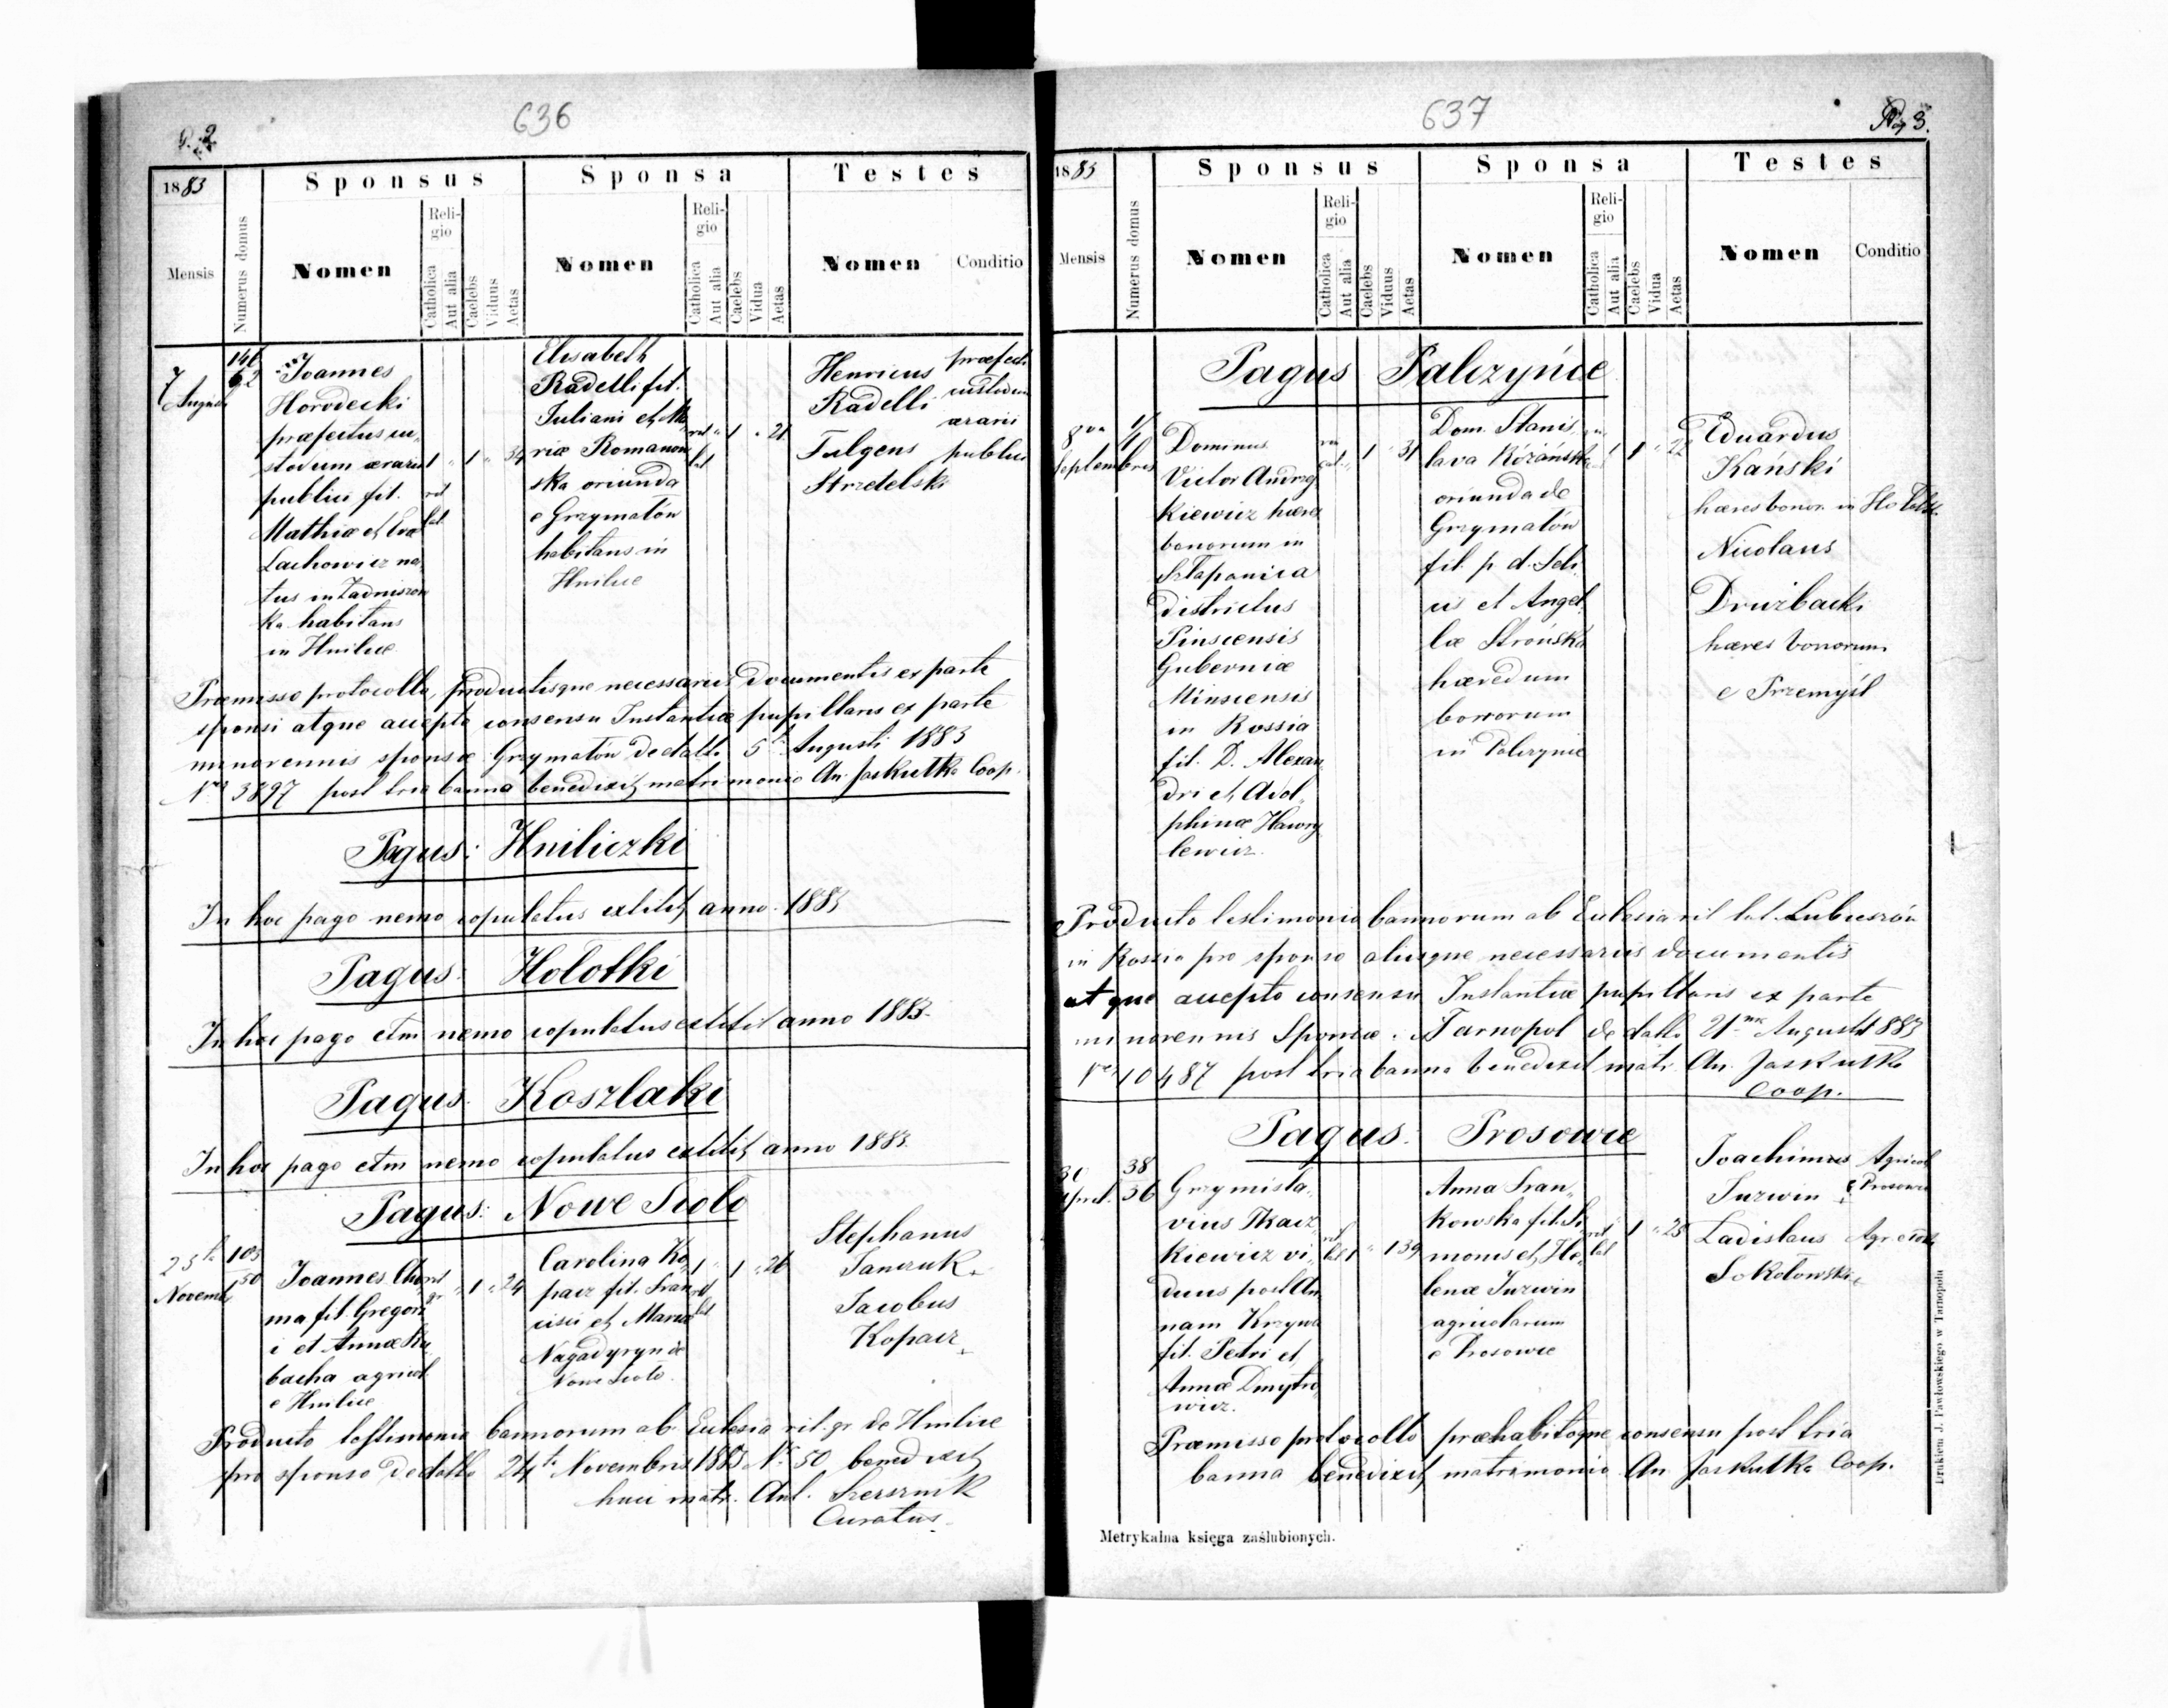 P. 2
636
1883
Sponsus
Sponsa
Testes
Mensis
Numerus domus
Nomen
Religio
Catholica
Aut alia
Caelebs
Viduus
Aetas
Nomen
Religio
Catholica
Aut alia
Caelebs
Vidua
Aetas
Nomen
Conditio
7
Augusti
146
62
Joannes
Horodecki
praefectus cu„
stodum aerarii
publici fil.
Mathiae et Evae
Lachowicz na„
tus in Zadniszow
ka habitans
in Hnilice
rit
lat
1 „ 1 „ 34
Elisabeth
Radelli fil.
Juliani et Ma„
riae Romanow
ska oriunda
e Grzymałów
habitans in
Hnilice
rit
lat
„ 1 „ 21
Henricus
Radelli
Fulgens
Strzetelski
praefecti
custodum
aerarii
publici
Praemisso protocollo, productisque necessariis documentis ex parte
sponsi atque accepto consensu Instantiae pupillaris ex parte
minorennis sponsae Grzymałów de datto 5ti Augusti 1883
Nro 3897 post tria banna benedixit matrimonio An. Jaskułka Coop.
Pagus: Hniliczki
In hoc pago nemo copulatus extitit anno 1883
Pagus: Hołotki
In hoc pago etm nemo copulatus extitit anno 1883.
Pagus: Koszlaki
In hoc pago etm nemo copulatus extitit anno 1883.
Pagus: Nowe Siolo
25ta
Novemb
103
150
Joannes Cho„
ma fil. Gregori
i et Annae Ku„
bacha agricol.
e Hnilice
rit
gr
„ 1 „ 24
Carolina Ko„
pacz fil. Fran
cisci et Mariae
Nagadyryn de
Nowe Siolo.
1
rit
lat
„ 1 „ 26
Stephanus
Janczuk
Jacobus
Kopacz
Producto testimonio bannorum ab Eclesia rit. gr de Hnilice
pro sponso de datto 24ta Novembris 1883 No 50 benedixit
huic matr. Ant. Szersznik
Curatus.
637
Pag 3.
1883
Sponsus
Sponsa
Testes
Mensis
Numerus domus
Nomen
Religio
Catholica
Aut alia
Caelebs
Viduus
Aetas
Nomen
Religio
Catholica
Aut alia
Caelebs
Vidua
Aetas
Nomen
Conditio
Pagus Palczyńce
8va
Septembris
1/1
Dominus
Victor Andrzej
kiewicz haeres
bonorum in
Sztaponica
districtus
Pinscensis
Guberniae
Minscensis
in Rossia
fil. D. Alexan„
dri et Adol„
phinae Hawry
lewicz.
1 „ 31
Dom. Stanis„
lava Różańska
oriunda de
Grzymałów
fil. p d. Feli„
cis et Angel„
lae Strońska
haeredum
bonorum
in Palczynce
1 „ 22
Eduardus
Kański
haeres bonor. in
Nicolaus
Drużbacki
haeres bonorum
e Przemyśl
Producto testimonio bannorum ab Eclesia rit lat. Lubieszów
in Rossia pro sponso aliisque necessariis documentis
atque accepto consensu Instantiae pupillaris ex parte
minorennis Sponsae. Tarnopol de datto 21ma Augusti 1883
Nro 10487 post tria banna benedixit matr. An. Jaskułka
Coop.
Pagus: Prosowce
30
April.
38
36
Grzymisla„
vius Tkacz„
kiewicz vi„
duus post An„
nam Krzywa
fil. Petri et
Annae Dmytro„
wicz.
rit
lat
1 „ 1 39
Anna Fran„
kowska fil. Si„
monis et He„
lenae Jurwin
agricolarum
e Prosowce
rit
lat
1 „ 25
Joachimus
Jurwin
Ladislaus
Sokołowski
Agricol
e Prosowce
Agr.
Praemisso protocollo praehabitoque consensu post tria
banna benedixit matrimonio An. Jaskułka Coop.
Metrykalna księga zaślubionych.
Drukiem J. Pawłowskiego w Tarnopolu